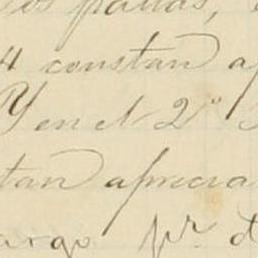 los pallas,
4 constan a
Y en el 2º
tan aprecia
argo pr. d